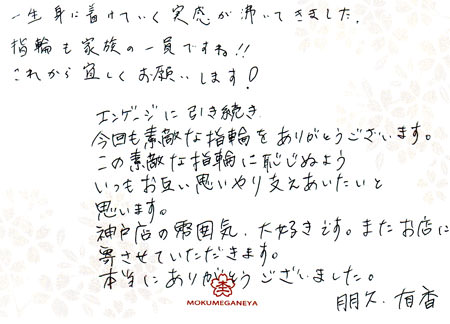 一生身に着けていく実感が沸いてきました。
指輪も家族の一員ですね!!
これから宜しくお願いします!
エンゲージに引き続き
今回も素敵な指輪をありがとうございます。
この素敵な指輪に恥じぬよう
いつもお互い思いやり支えあいたいと
思います。
神戸店の雰囲気、大好きです。またお店に
寄させていただきます。
本当にありがとうございました。
杢
MOKUMEGANEYA
朋久、有香